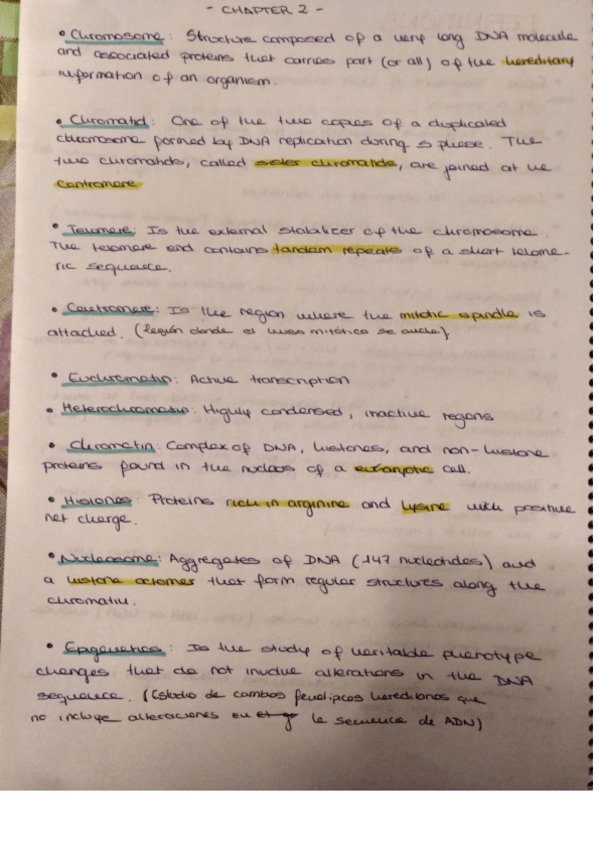 - CHAPTER 2 -
• Chromosome: Structure composed of a very long DNA molecule
and associated proteins that carries part (or all) of the hereditary
information of an organism.
• Chromatid: One of the two copies of a duplicated
chromosome formed by DNA replication during s phase. The
two chromatids, called sister chromatids, are joined at the
centromere
• Telomere: Is the external stabilizer of the chromosome.
The telomere end contains tandam repeats of a short telome-
ric sequence.
• Centromere: Is the region where the mitotic spindle is
attached. (Región donde el huso mitótico se ancla)
• Euchromatin: Active transcription
• Heterochromatin: Highly condensed, inactive regions
• Chromatin: Complex of DNA, histones, and non-histone
proteins found in the nucleus of a eukaryotic cell.
• Histones: Proteins rich in arginine and lysine with positive
net charge.
• Nucleosome: Aggregates of DNA (147 nucleotides) and
a histone octomer that form regular structures along the
chromatin.
• Epigenetics: Is the study of heritable phenotype
changes that do not involve alterations in the DNA
sequence. (Estudio de cambios fenotípicos hereditarios que
no incluye alteraciones en la secuencia de ADN)